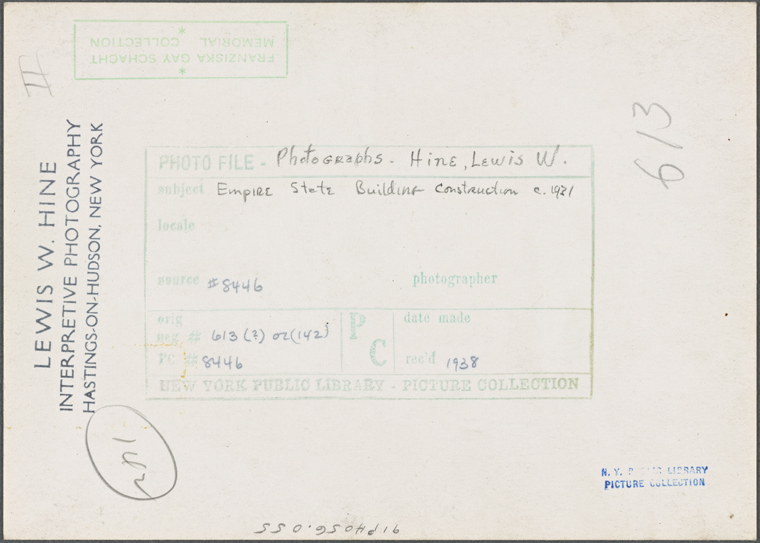 FRANZISKA GAY SCHACHT
*
MEMORIAL COLLECTION
*
II
LEWIS W. HINE
INTERPRETIVE PHOTOGRAPHY
HASTINGS-ON-HUDSON, NEW YORK
613
PHOTO FILE - Photographs. Hine, Lewis W.
subject Empire State Building Construction c. 1931
locale
source #8446
photographer
orig
neg. # 613 (?) or (142)
PC # 8446
PC
date made
rec'd 1938
NEW YORK PUBLIC LIBRARY - PICTURE COLLECTION
N. Y. PUBLIC LIBRARY
PICTURE COLLECTION
91PH056.055